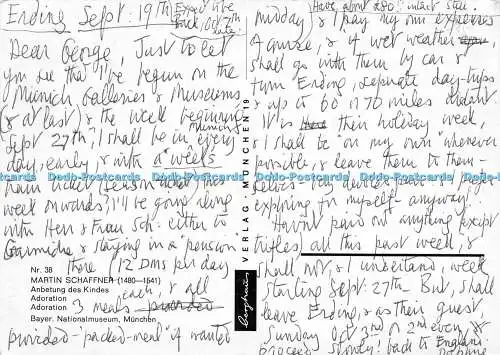 Ending Sept: 19th Expect to be
back, Oct: 7th
late!
Dear George, Just to let
you see that I've begun on the
Munich Galleries & Museums
(& at last) & the week beginning
Sept 27th, I shall be in Munich every
day, early, & with a week's
tram ticket (season ticket) this
week onwards, I'll be going along
with Herr & Frau Sch. either to
Garmisch & staying in a 'pension'
there (12 DMs per day
each, & all
3 meals provided
provided - 'packed-meal' if wanted
Nr. 38
MARTIN SCHAFFNER (1480–1541)
Anbetung des Kindes
Adoration
Adoration
Bayer. Nationalmuseum, München
berghaus
VERLAG · MÜNCHEN 19
(Have about £80! intact still.
midday) & I pay my own expenses
of course, & if wet weather
shall go with them by car &
from Ending, separate day-trips
& up to 60 or 70 miles distant
It is their holiday week
& I shall be 'on my own' whenever
possible, & leave them to them-
selves -
exploring for myself - anyway!
Havn't paid out anything except
trifles, all this past week, &
shall not, & I understand, week
starting Sept: 27th But, shall
leave Ending, & as their guest,
Sunday Oct 3rd or 2nd even, &
proceed slowly! back to England.
Dodo-Postcards Dodo-Postcards Dodo-Postcards Dodo-Postcards